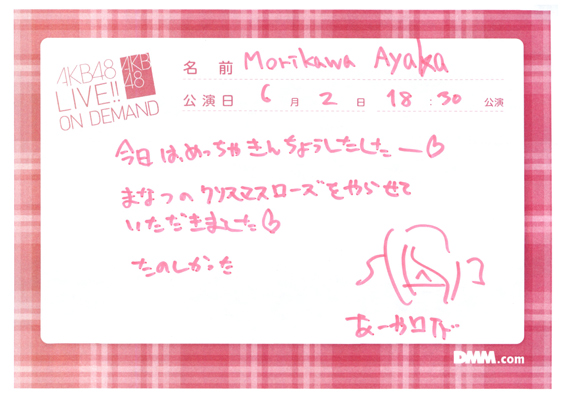 AKB48
LIVE!!
ON DEMAND
AKB
48
名前 Morikawa Ayaka
公演日 6月2日 18:30公演
今日は、めっちゃきんちょうしたしたー♡
まなつのクリスマスローズをやらせて
いただきました♡
たのしかった
あーやロイド
DMM.com